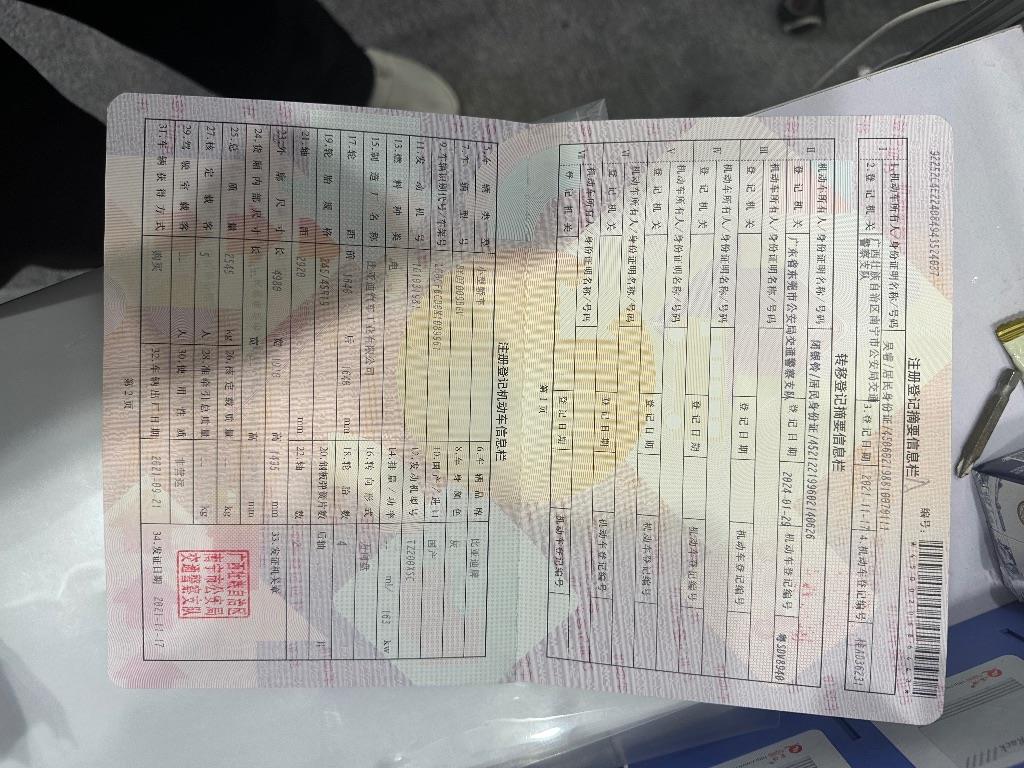 注册登记摘要信息栏
编号:
I
1.机动车所有人/身份证明名称/号码
吴睿/居民身份证/
2.登记机关
广西壮族自治区南宁市公安局交通警察支队
3.登记日期
2021-11-17
4.机动车登记编号
转移登记摘要信息栏
II
机动车所有人/身份证明名称/号码
/居民身份证/452122199602140626
登记机关
广东省东莞市公安局交通警察支队
登记日期
2024-01-29
机动车登记编号
粤SDV8940
III
机动车所有人/身份证明名称/号码
登记机关
登记日期
机动车登记编号
IV
机动车所有人/身份证明名称/号码
登记机关
登记日期
机动车登记编号
V
机动车所有人/身份证明名称/号码
登记机关
登记日期
机动车登记编号
VI
机动车所有人/身份证明名称/号码
登记机关
登记日期
机动车登记编号
VII
机动车所有人/身份证明名称/号码
登记机关
登记日期
机动车登记编号
第1页
注册登记机动车信息栏
5.车辆类型
小型轿车
6.车辆品牌
比亚迪牌
7.车辆型号
8.车身颜色
灰
9.车辆识别代号/车架号
10.国产/进口
国产
11.发动机号
12.发动机型号
TZ200XSC
13.燃料种类
电
14.排量/功率
-- ml/ 163 kw
15.制造厂名称
比亚迪汽车工业有限公司
16.转向形式
方向盘
17.轮距
前 1640 后 1640 mm
18.轮胎数
4
19.轮胎规格
245/45R19
20.钢板弹簧片数
后轴 -- 片
21.轴距
2920 mm
22.轴数
2
23.外廓尺寸
长 4980 宽 1910 高 1495 mm
33.发证机关章
广西壮族自治区
南宁市公安局
交通警察支队
24.货厢内部尺寸
长 宽 高 mm
25.总质量
2545 kg
26.核定载质量
-- kg
27.核定载客
5 人
28.准牵引总质量
-- kg
29.驾驶室载客
-- 人
30.使用性质
非营运
31.车辆获得方式
购买
32.车辆出厂日期
2021-09-21
34.发证日期
2021-11-17
第2页